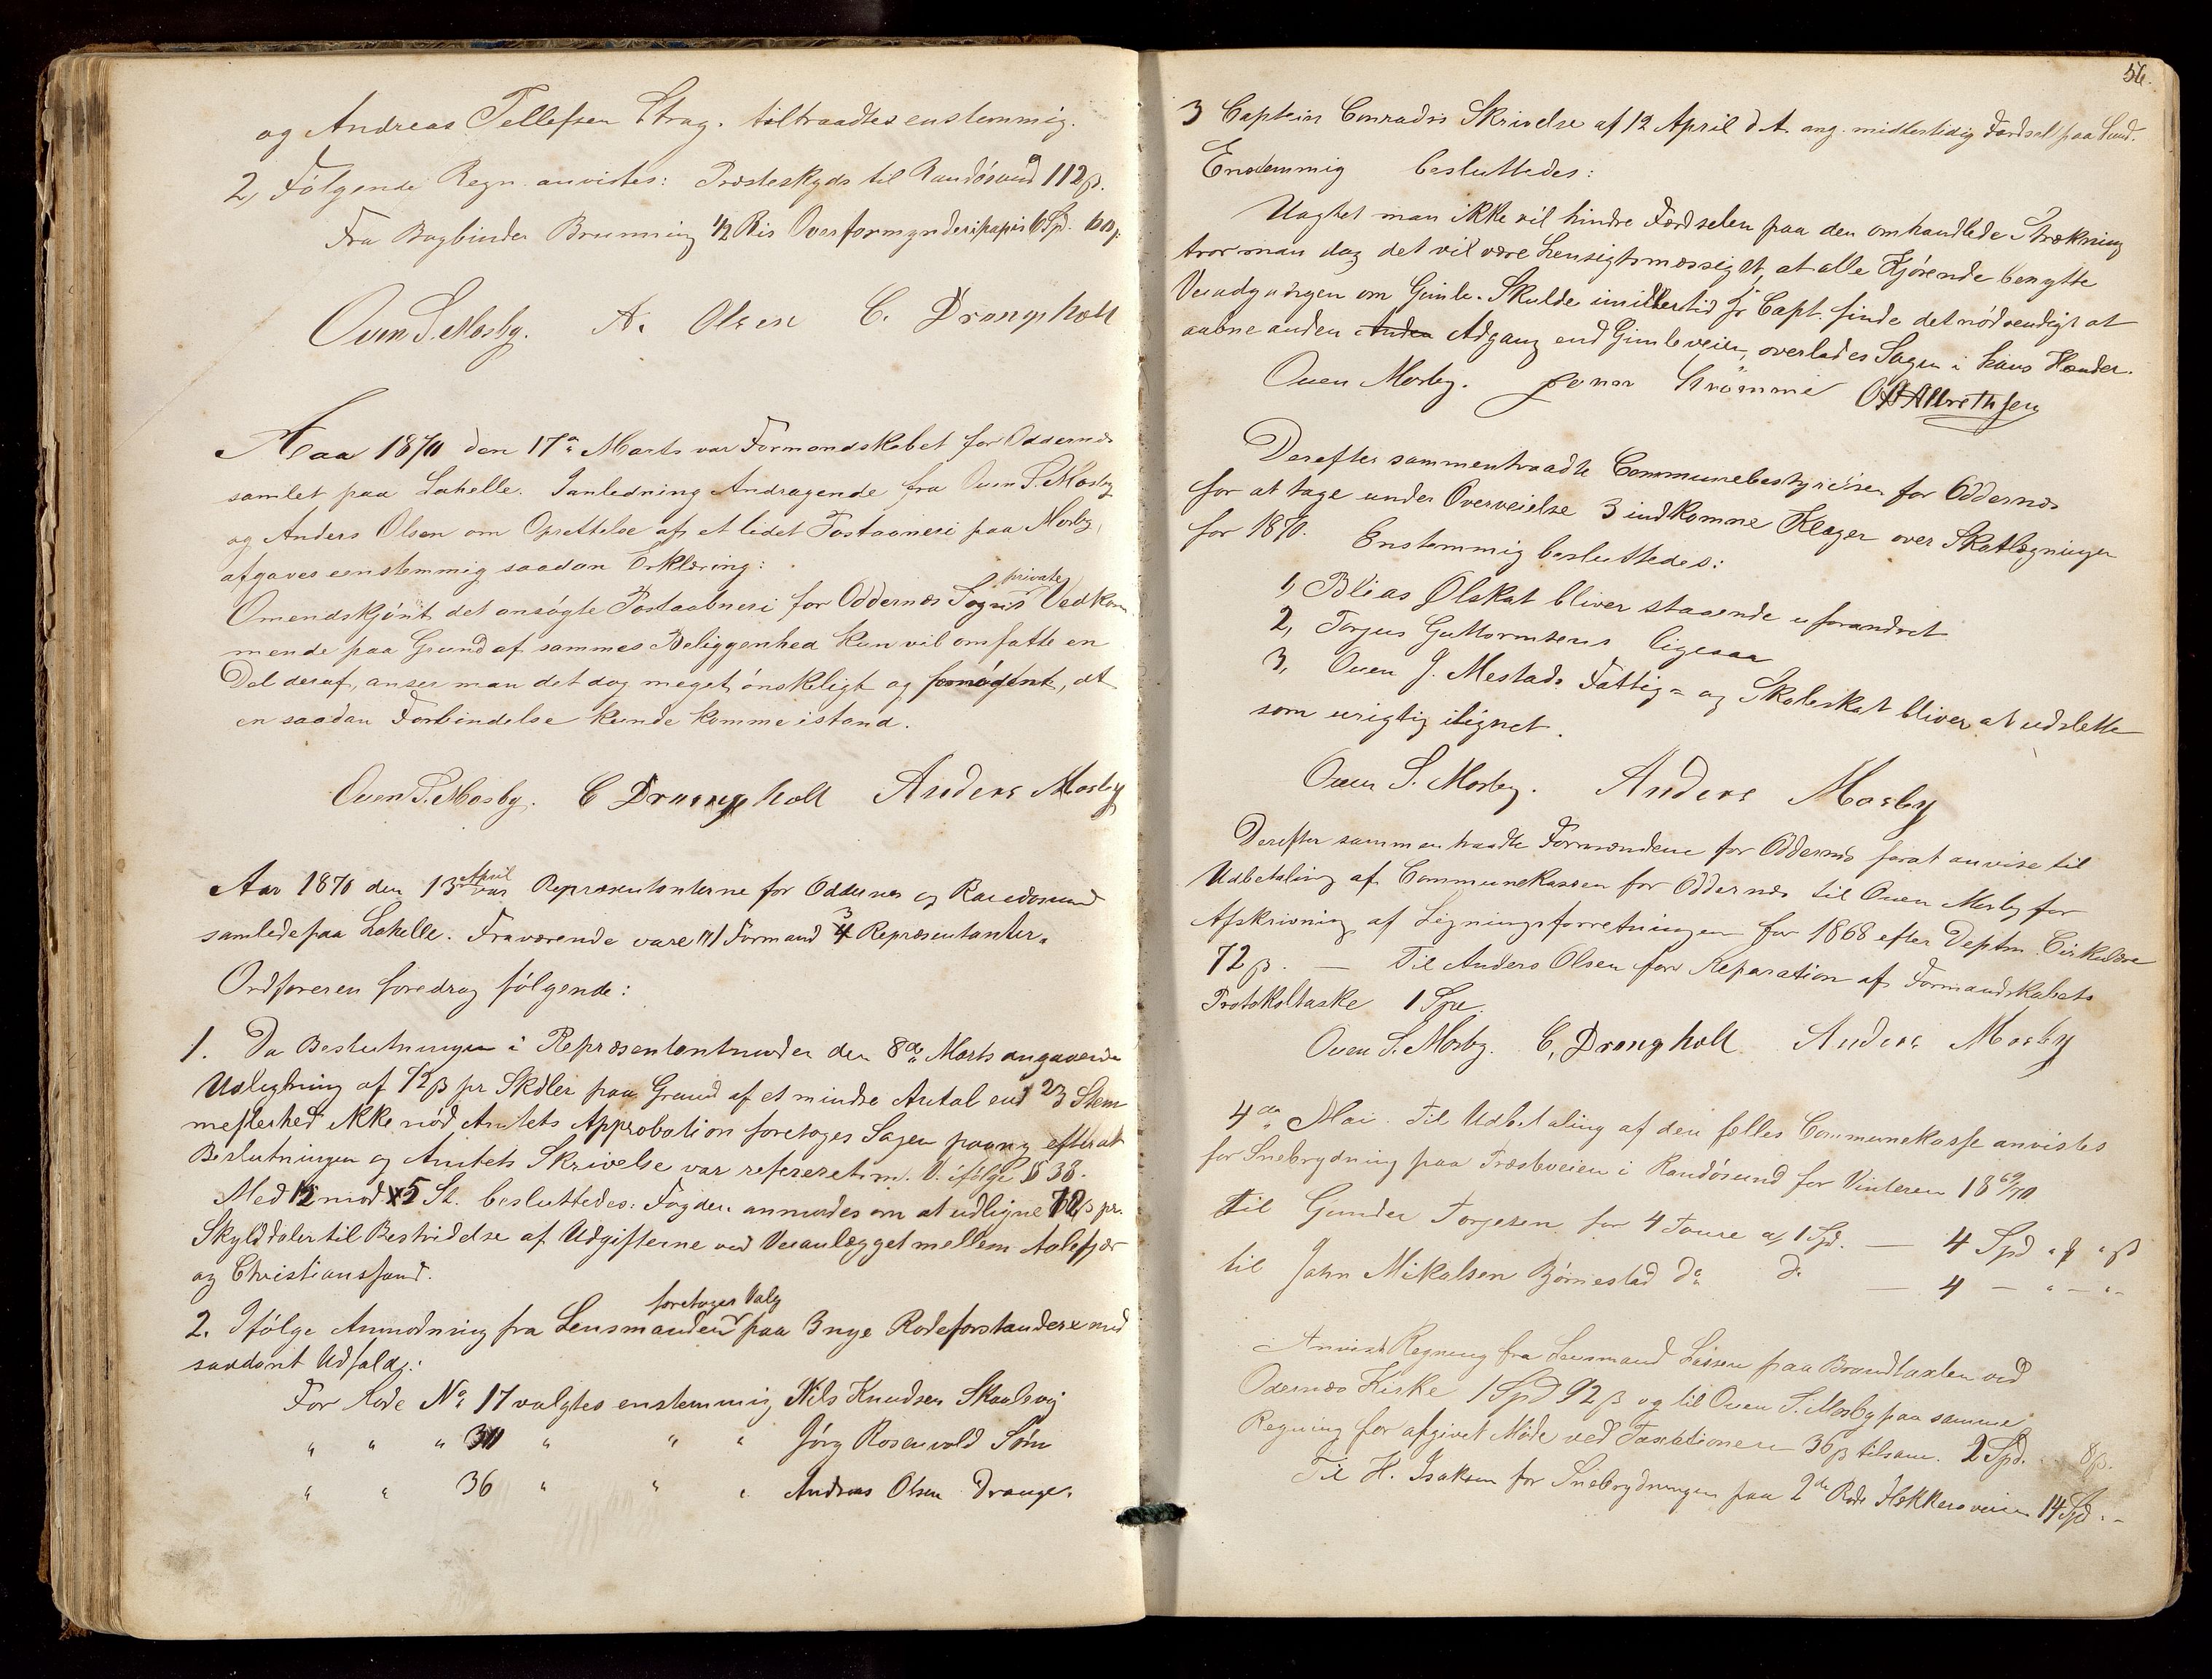 og Andreas Tellefsen Strag. tiltraadtes enstemmig.
2, Følgende Regn. anvistes: Præsteskyds til Randøsund 112 β.
Fra Bogbinder Brunning 1/2 Ris Overformynderipapir 6 Spd. 60 β.
Ouen S. Mosby. A. Olsen C. Drangsholt
Aar 1870 den 17de Marts var Formandskabet for Oddernæs
samlet paa Lahelle. I anledning Andragende fra Ouen S. Mosby
og Anders Olsen om Oprettelse af et lidet Postaabneri paa Mosby,
afgaves eenstemmig saadan Erklæring:
Omendskjønt det ansøgte Postaabneri for Oddernæs Sogns private Vedkom
mende paa Grund af sammes Beliggenhed kun vil omfatte en
Del deraf, anser man det dog meget ønskeligt og fornødent, at
en saadan Forbindelse kunde komme istand.
Ouen S. Mosby. C Drangsholt Anders Mosby
Aar 1870 den 13 April var Repræsentanterne for Oddernes og Randøsund
samlede paa Lahelle. Fraværende vare 1 Formand 3 Repræsentanter.
Ordføreren foredrog følgende:
1. Da Beslutningen i Repræsentantmøder den 8de Marts angaaende
Udligning af 72 β pr Skdler paa Grund af et mindre Antal end 2/3 Stem
meflerhed ikke nød Amtets Approbation foretoges Sagen paany efterat
Beslutningen og Amtets Skrivelse var refereret m. V. ifølge § 38.
Med 12 mod 5 St. besluttedes: Fogden anmodes om at udligne 72 β pr.
Skylddaler til Bestridelse af Udgifterne ved Veianlægget mellem Aalefjær
og Christianssand.
2. Ifølge Anmodning fra Lensmanden foretoges Valg paa 3 nye Rodeforstandere med
saadant Udfald:
For Rode No 17 valgtes enstemmig Nils Knudsen Skaalevig
" " " 30 " " " Jørg Rosenvold Søm
" " 36 " " " Andreas Olsen Drange.
56.
3 Captein Conradis Skrivelse af 12 April d. A. ang. midlertidig Færdsel paa Lund.
Enstemmig besluttedes:
Uagtet man ikke vil hindre Færdselen paa den omhandlede Strækning
tror man dog det vil være hensigtsmæssigst, at alle Kjørende benytte
Veiadgangen om Gimle. Skulde imidlertid Hr Capt. finde det nødvendigt at
aabne anden Anden Adgang end Gimleveien, overlades Sagen i hans Hænder.
Ouen Mosby. Jonas Strømme O A Albrethsen
Derefter sammentraadte Communebestyrelsen for Oddernæs
for at tage under Overveielse 3 indkomne Klager over Skatlægningen
for 1870. Enstemmig besluttedes:
1, Elias Ølskat bliver staaende uforandret
2, Torjus Guttormsens ligesaa
3, Ouen J. Mestads Fattig- og Skoleskat bliver at udslette
som urigtig ilignet.
Ouen S. Mosby. Anders Mosby
Derefter sammentraadte Formændene for Oddernæs forat anvise til
Udbetaling af Communekassen for Oddernæs til Ouen Mosby for
Afskrivning af Ligningsforretningen for 1868 efter Deptm. Cirkulære
72 β. — Til Anders Olsen for Reparation af Formandskabets
Protokoltaske 1 Spd.
Ouen S. Mosby. C. Drangsholt Anders Mosby
4de Mai. Til Udbetaling af den fælles Communekasse anvistes
for Snebrydning paa Præsteveien i Randøsund for Vinteren 1869/70
til Gunder Torjesen for 4 Toure a 1 Spd. — 4 Spd " β
til John Mikalsen Bjørnestad do d. — 4 — " — "
Anvist Regning fra Lensmand Lassen paa Brandtaxten ved
Odernæs Kirke 1 Spd 92 β og til Ouen S. Mosby paa samme
Regning for afgivet Møde ved Taxationen 36 β tilsam. 2 Spd. 8 β.
Til H. Isaksen for Snebrydningen paa 2de Rode Hækkersveien 14 Spd. -